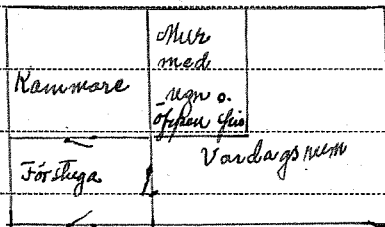 Kammare
Mur
med
ugn o.
öppen spis
Förstuga
Vardagsrum